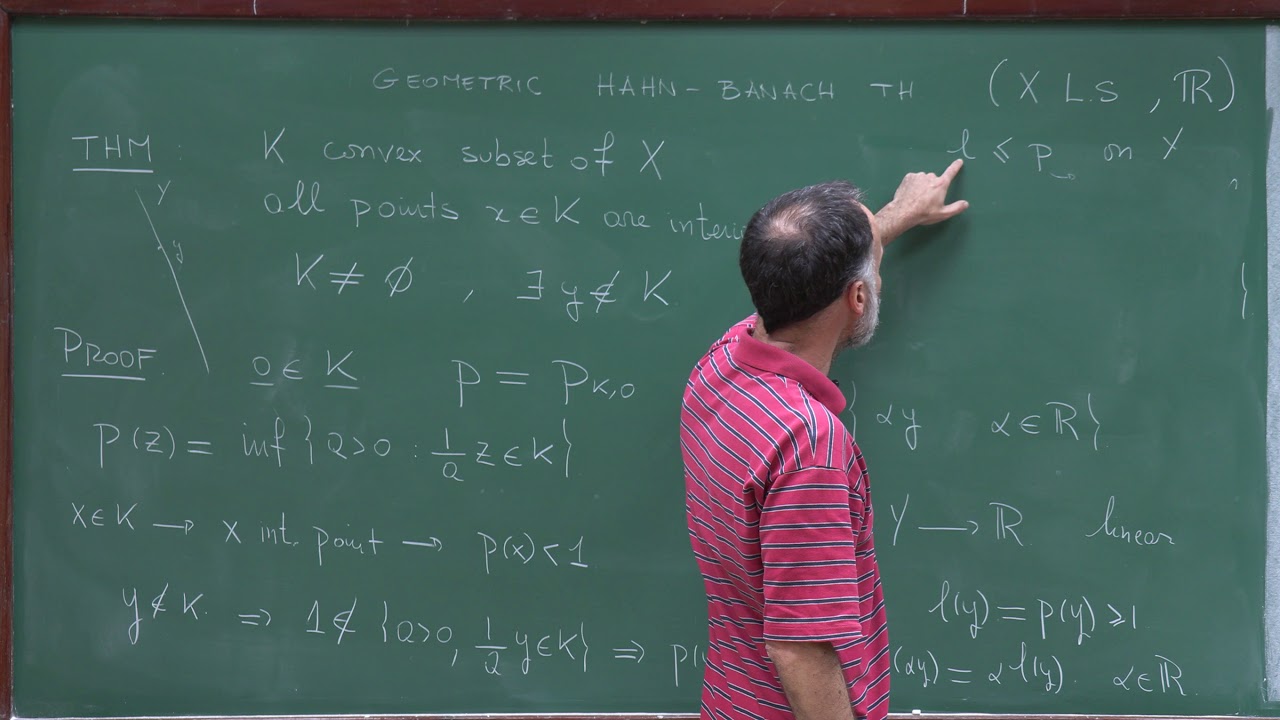 GEOMETRIC HAHN-BANACH TH (X L.S , ℝ)
THM : K convex subset of X
l ≤ p on Y
Y
all points x ∈ K are
y
K ≠ ∅ , ∃ y ∉ K
}
PROOF. 0 ∈ K p = p_{K,0}
αy α ∈ ℝ}
p(z) = inf {a>0 : 1/a z ∈ K}
x ∈ K → x int. point → p(x) < 1
Y → ℝ linear
y ∉ K. ⇒ 1 ∉ {a>0, 1/a y ∈ K} ⇒ p(
l(y) = p(y) ≥ 1
(αy) = α l(y). α ∈ ℝ.